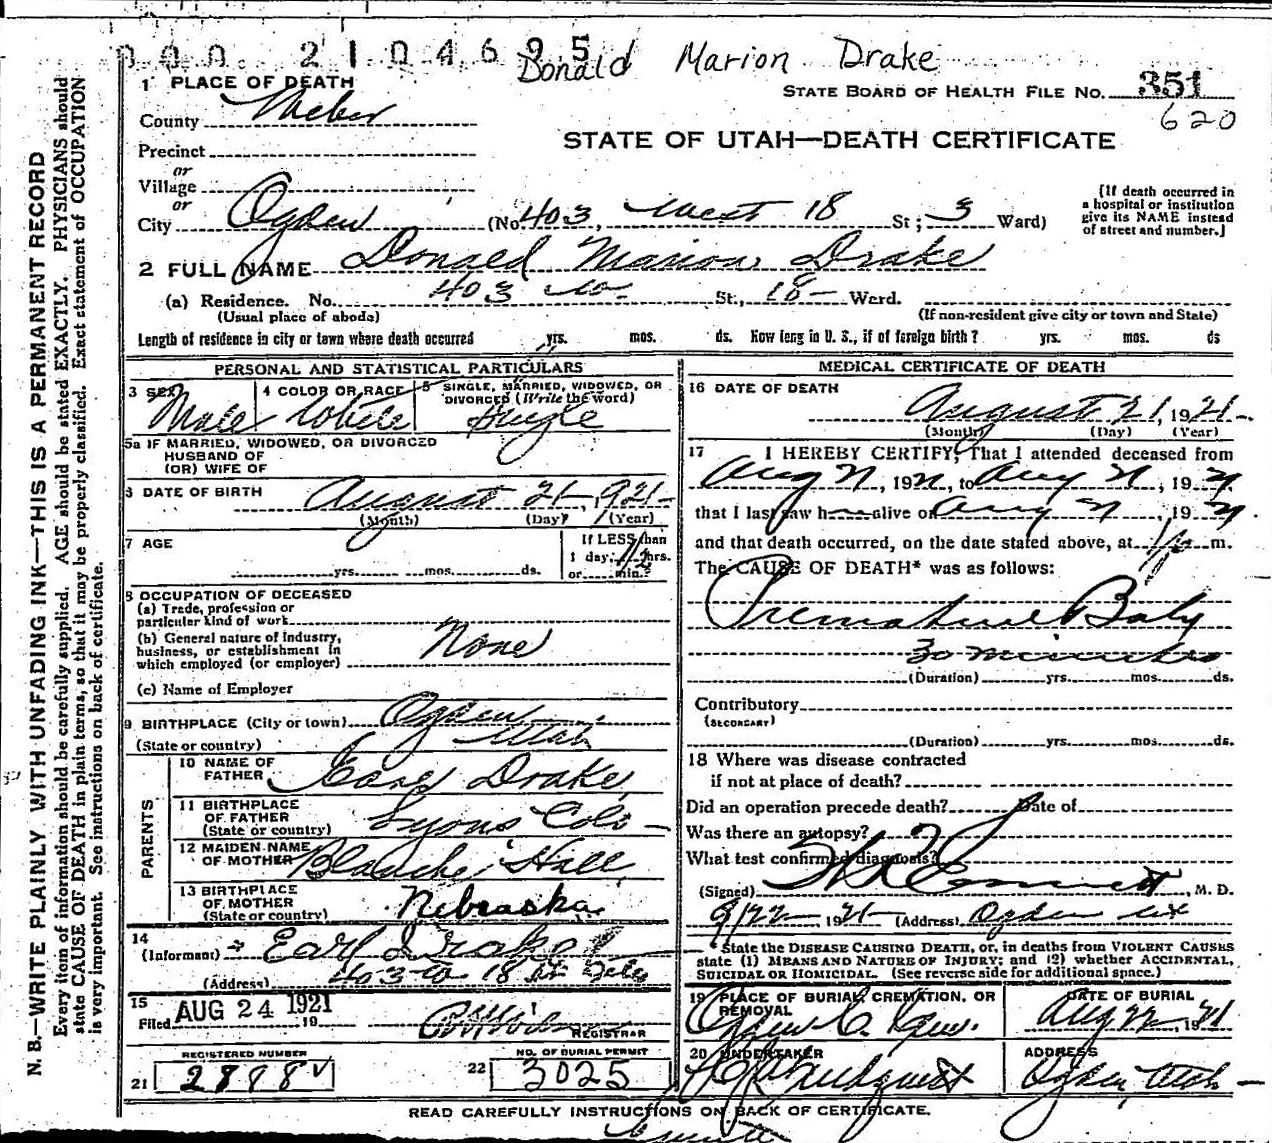 000 2104695
Donald Marion Drake
1 PLACE OF DEATH
STATE BOARD OF HEALTH FILE NO. 351
620
County Weber
STATE OF UTAH—DEATH CERTIFICATE
Precinct
or
Village
or
City Ogden (No. 403, West 18 St; 3 Ward)
(If death occurred in
a hospital or institution
give its NAME instead
of street and number.)
2 FULL NAME Donald Marion Drake
(a) Residence. No. 403 W. St., 18 Ward.
(Usual place of abode) (If non-resident give city or town and State)
Length of residence in city or town where death occurred yrs. mos. ds. How long in U. S., if of foreign birth? yrs. mos. ds
PERSONAL AND STATISTICAL PARTICULARS
3 SEX
Male
4 COLOR OR RACE
White
5 SINGLE, MARRIED, WIDOWED, OR
DIVORCED (Write the word)
Single
5a IF MARRIED, WIDOWED, OR DIVORCED
HUSBAND OF
(OR) WIFE OF
6 DATE OF BIRTH August 21, 1921
(Month) (Day) (Year)
7 AGE
yrs. mos. ds.
If LESS than
1 day, 1/2 hrs.
or min.
8 OCCUPATION OF DECEASED
(a) Trade, profession or
particular kind of work
(b) General nature of industry,
business, or establishment in
which employed (or employer)
None
(c) Name of Employer
9 BIRTHPLACE (City or town) Ogden
(State or country) Utah
PARENTS
10 NAME OF
FATHER Earl Drake
11 BIRTHPLACE
OF FATHER
(State or country) Lyons Colo
12 MAIDEN NAME
OF MOTHER Blanche Hall
13 BIRTHPLACE
OF MOTHER
(State or country) Nebraska
14
(Informant) Earl Drake
(Address) 403 W 18 St
15
Filed AUG 24 1921 19
REGISTRAR
REGISTERED NUMBER
21
NO. OF BURIAL PERMIT
22 3025
MEDICAL CERTIFICATE OF DEATH
16 DATE OF DEATH
August 21, 1921
(Month) (Day) (Year)
17 I HEREBY CERTIFY, That I attended deceased from
Aug 21, 1921, to Aug 21, 1921
that I last saw h alive on Aug 21, 1921
and that death occurred, on the date stated above, at m.
The CAUSE OF DEATH* was as follows:
Premature Baby
30 minutes
(Duration) yrs. mos. ds.
Contributory
(SECONDARY)
(Duration) yrs. mos. ds.
18 Where was disease contracted
if not at place of death?
Did an operation precede death? Date of
Was there an autopsy?
What test confirmed diagnosis?
(Signed) , M. D.
1921 (Address) Ogden
* State the DISEASE CAUSING DEATH, or, in deaths from VIOLENT CAUSES
state (1) MEANS AND NATURE OF INJURY; and (2) whether ACCIDENTAL,
SUICIDAL OR HOMICIDAL. (See reverse side for additional space.)
19 PLACE OF BURIAL, CREMATION, OR
REMOVAL
Ogden
DATE OF BURIAL
Aug 22, 1921
20 UNDERTAKER
Lindquist
ADDRESS
Ogden, Utah
READ CAREFULLY INSTRUCTIONS ON BACK OF CERTIFICATE.
N. B.—WRITE PLAINLY WITH UNFADING INK—THIS IS A PERMANENT RECORD
Every item of information should be carefully supplied. AGE should be stated EXACTLY. PHYSICIANS should
state CAUSE OF DEATH in plain terms, so that it may be properly classified. Exact statement of OCCUPATION
is very important. See instructions on back of certificate.